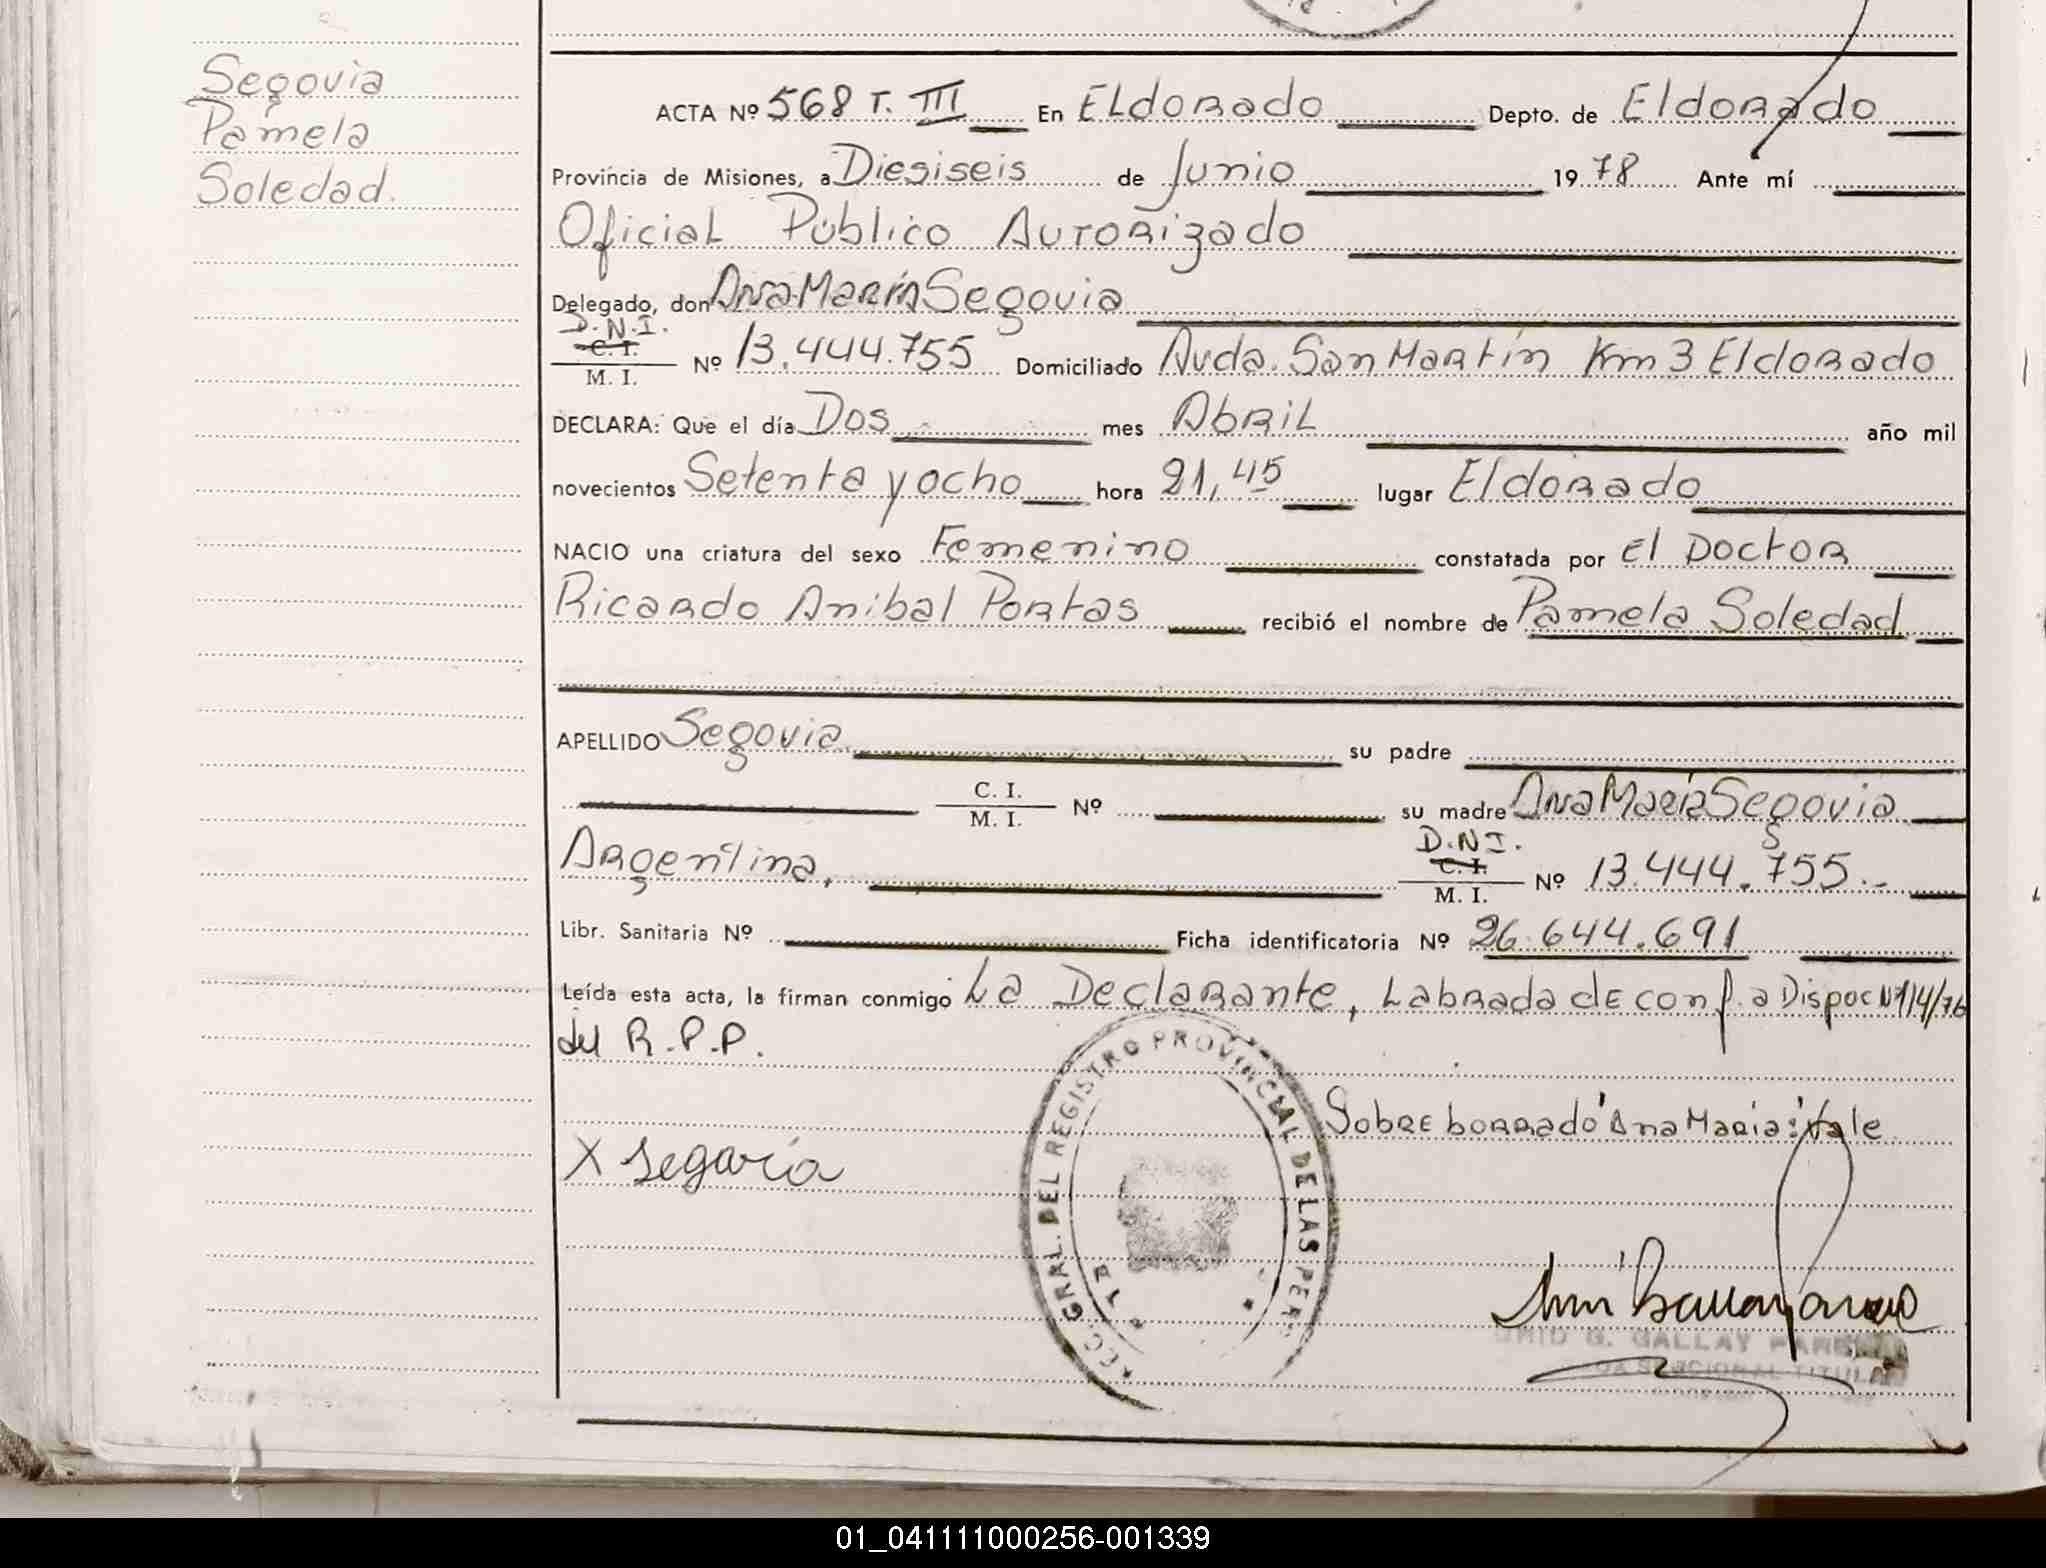 Segovia
Pamela
Soledad.
ACTA Nº 568 T. III En ELdorado Depto. de Eldorado
Provincia de Misiones, a Diesiseis de Junio 1978 Ante mí
Oficial Público Autorizado
Delegado, don Ana María Segovia
D.N.I.
C. I.
M. I. Nº 13.444.755 Domiciliado Avda. San Martín Km 3 Eldorado
DECLARA: Que el día Dos mes Abril año mil
novecientos Setenta y ocho hora 21,45 lugar Eldorado
NACIO una criatura del sexo Femenino constatada por El Doctor
Ricardo Anibal Portas recibió el nombre de Pamela Soledad
APELLIDO Segovia su padre
C. I.
M. I. Nº su madre Ana María Segovia
Argentina, D.N.I.
C. I.
M. I. Nº 13.444.755.-
Libr. Sanitaria Nº Ficha identificatoria Nº 26.644.691
Leída esta acta, la firman conmigo La Declarante, Labrada de conf. a Dispoc Nº 14/76
del R.P.P.
GRAL. DEL REGISTRO PROVINCIAL DE LAS PERS
Sobre borrado "Ana María" Vale
X Segovia
G. GALLAY PARE
TITULAR
01_041111000256-001339